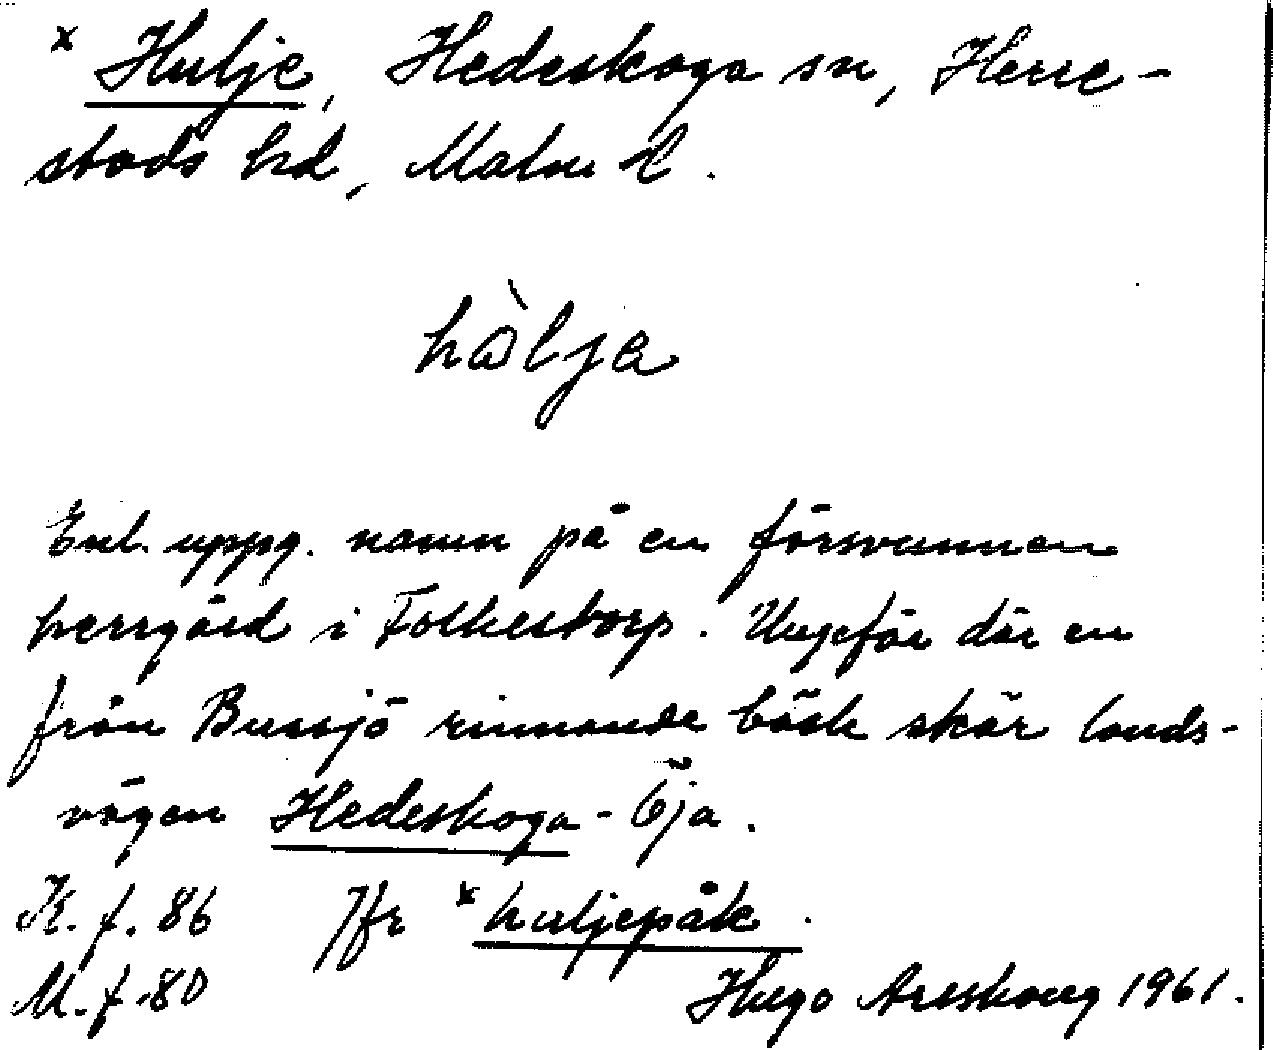 x Hulje, Hedeskoga sn, Herre-
stads hd, Malm L.
hòlja
Enl. uppg. namn på en försvunnen
herrgård i Folkestorp. Ungefär där en
från Bussjö rinnande bäck skär lands-
vägen Hedeskoga - Öja.
K. f. 86 Jfr x huljepåk.
M. f. 80 Hugo Areskoug 1961.